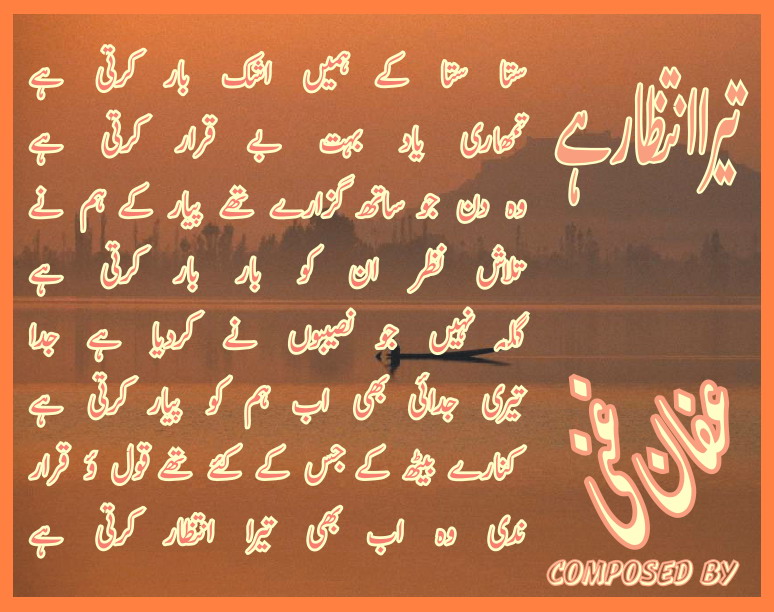 تیرا انتظار ہے
ستا ستا کے ہمیں اشک بار کرتی ہے
تمھاری یاد بہت بے قرار کرتی ہے
وہ دن جو ساتھ گزارے تھے پیار کے ہم نے
تلاش نظر ان کو بار بار کرتی ہے
گلہ نہیں جو نصیبوں نے کردیا ہے جدا
تیری جدائی بھی اب ہم کو پیار کرتی ہے
کنارے بیٹھ کے جس کے کئے تھے قول وُ قرار
ندی وہ اب بھی تیرا انتظار کرتی ہے
عفان غنی
COMPOSED BY